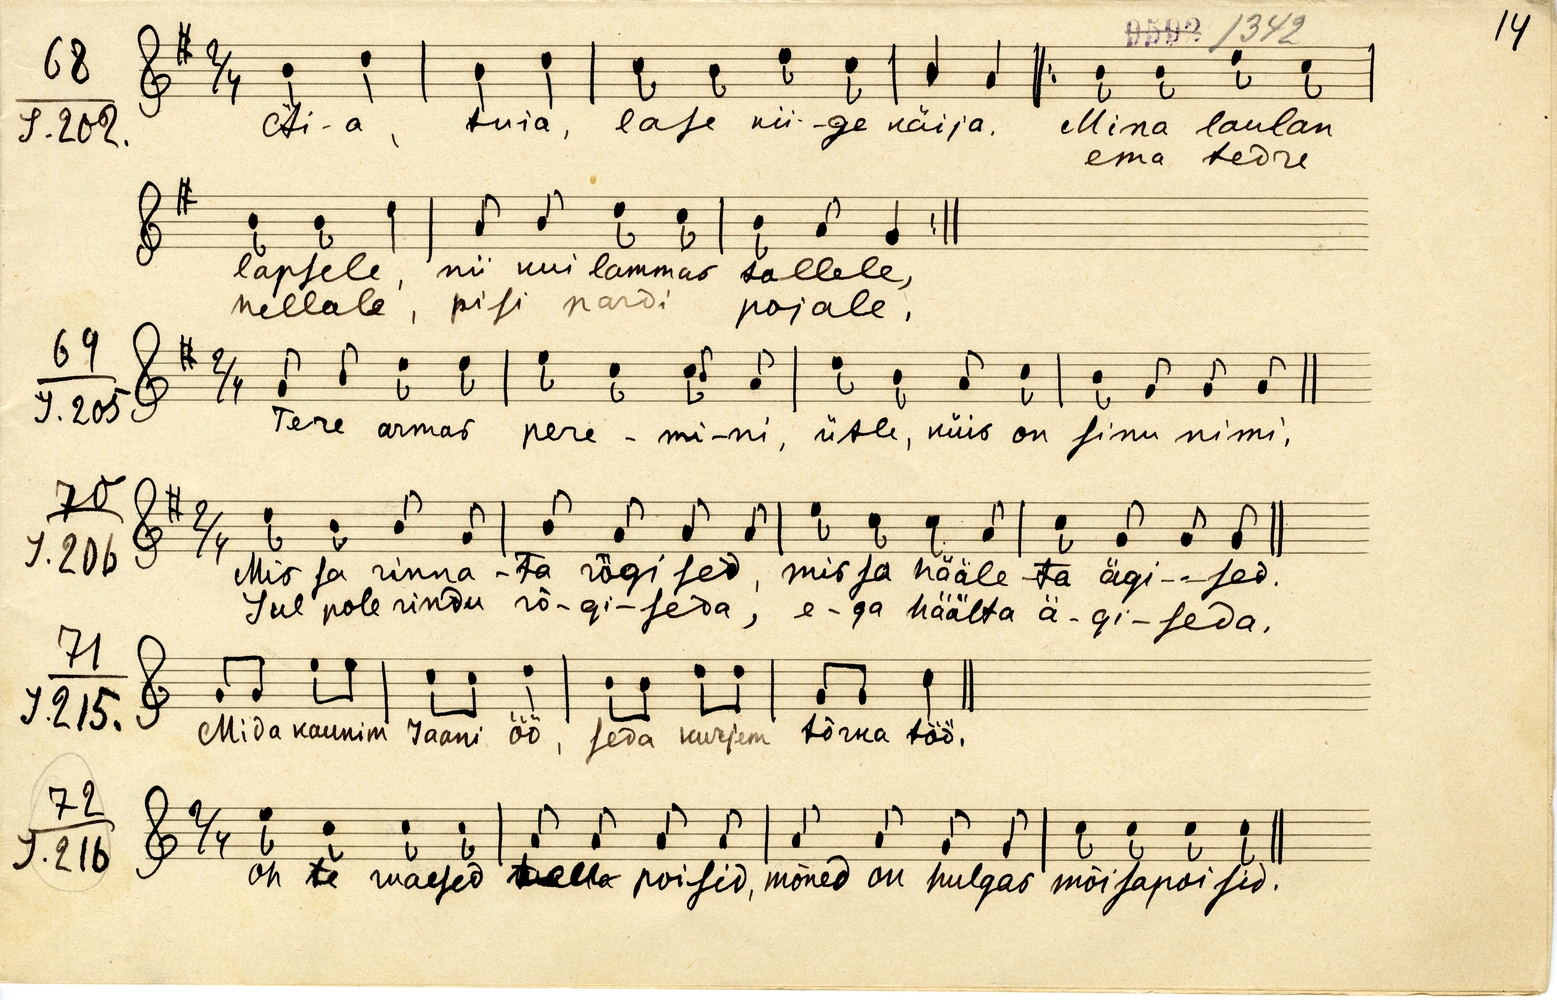 9592 1342 14
68
J. 202.
2/4
Äi-a, tuia, lase kii-ge käija. Mina laulan
ema tedre
lapsele, nii kui lammas tallele,
kellale, pisi pardi pojale,
69
J. 205
2/4
Tere armas pere-mi-ni, ütle, küis on sinu nimi,
70
J. 206
2/4
Mis sa rinna-ta rõgised, mis sa hääle-ta ägi--sed.
Sul pole rindu rõ-gi-seda, e-ga häälta ä-gi-seda.
71
J. 215.
Mida kaunim Jaani öö, seda kurjem tõrka töö.
72
J. 216
2/4
Oh te waesed talla poisid, mõned on hulgas mõisapoisid.